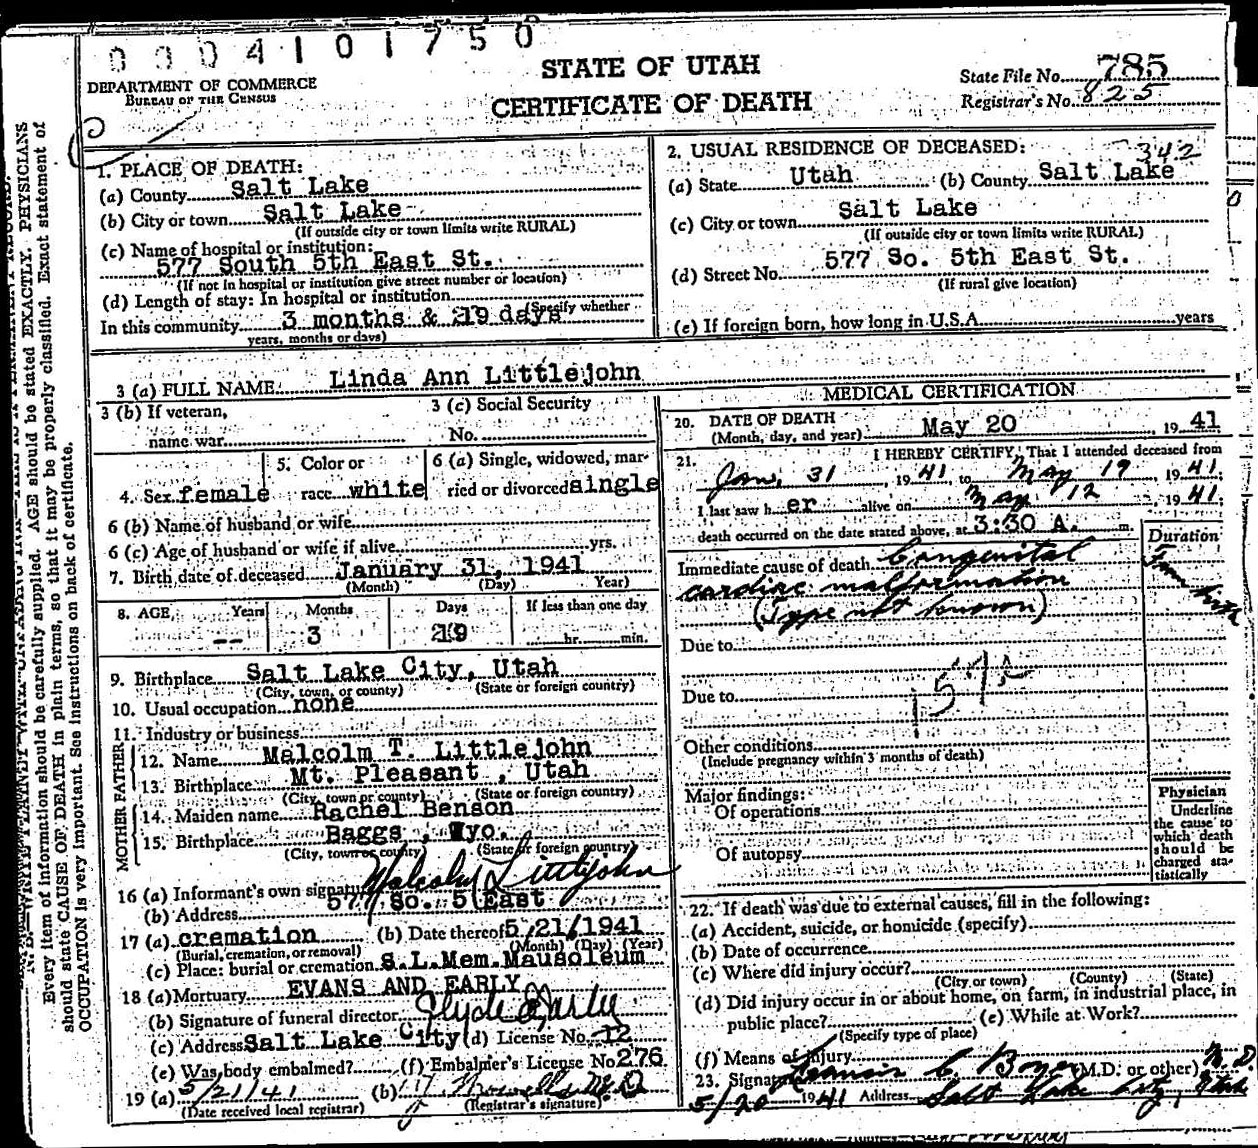 0004101750
DEPARTMENT OF COMMERCE
BUREAU OF THE CENSUS
STATE OF UTAH
CERTIFICATE OF DEATH
State File No. 785
Registrar's No. 825
1. PLACE OF DEATH:
(a) County Salt Lake
(b) City or town Salt Lake
(If outside city or town limits write RURAL)
(c) Name of hospital or institution:
577 South 5th East St.
(If not in hospital or institution give street number or location)
(d) Length of stay: In hospital or institution
(Specify whether
In this community 3 months & 19 days
years, months or days)
2. USUAL RESIDENCE OF DECEASED: 342
(a) State Utah (b) County Salt Lake
(c) City or town Salt Lake
(If outside city or town limits write RURAL)
(d) Street No. 577 So. 5th East St.
(If rural give location)
(e) If foreign born, how long in U.S.A. years
3 (a) FULL NAME Linda Ann Littlejohn
3 (b) If veteran, name war
3 (c) Social Security No.
4. Sex female
5. Color or race white
6 (a) Single, widowed, married or divorced single
6 (b) Name of husband or wife
6 (c) Age of husband or wife if alive yrs.
7. Birth date of deceased January 31, 1941
(Month) (Day) Year)
8. AGE Years Months Days If less than one day
-- 3 19 hr. min.
9. Birthplace Salt Lake City, Utah
(City, town, or county) (State or foreign country)
10. Usual occupation none
11. Industry or business
FATHER
12. Name Malcolm T. Littlejohn
13. Birthplace Mt. Pleasant, Utah
(City, town or county) (State or foreign country)
MOTHER
14. Maiden name Rachel Benson
15. Birthplace Baggs, Wyo.
(City, town or county) (State or foreign country)
16 (a) Informant's own signature Malcolm Littlejohn
(b) Address 577 So. 5 East
17 (a) cremation (b) Date thereof 5/21/1941
(Burial, cremation, or removal) (Month) (Day) (Year)
(c) Place: burial or cremation S.L.Mem.Mausoleum
18 (a) Mortuary EVANS AND EARLY
(b) Signature of funeral director Clyde Early
(c) Address Salt Lake City (d) License No. 12
(e) Was body embalmed? (f) Embalmer's License No 276
19 (a) 5/21/41 (b)
(Date received local registrar) (Registrar's signature)
MEDICAL CERTIFICATION
20. DATE OF DEATH
(Month, day, and year) May 20 1941
21. I HEREBY CERTIFY, That I attended deceased from
Jan, 31, 1941, to May 19 1941.
I last saw her alive on May 12 1941.
death occurred on the date stated above, at 3:30 A. m.
Duration
Immediate cause of death Congenital
cardiac malformation From birth
(Type not known)
Due to
Due to
Other conditions
(Include pregnancy within 3 months of death)
Major findings:
Of operations
Of autopsy
Physician
Underline
the cause to
which death
should be
charged sta-
tistically
22. If death was due to external causes, fill in the following:
(a) Accident, suicide, or homicide (specify)
(b) Date of occurrence
(c) Where did injury occur?
(City or town) (County) (State)
(d) Did injury occur in or about home, on farm, in industrial place, in
public place? (e) While at Work?
(Specify type of place)
(f) Means of Injury
23. Signature Francis C. (M.D. or other) M.D.
5/20 1941 Address Salt Lake City, Utah
Every item of information should be carefully supplied. AGE should be stated EXACTLY. PHYSICIANS
should state CAUSE OF DEATH in plain terms, so that it may be properly classified. Exact statement of
OCCUPATION is very important. See instructions on back of certificate.